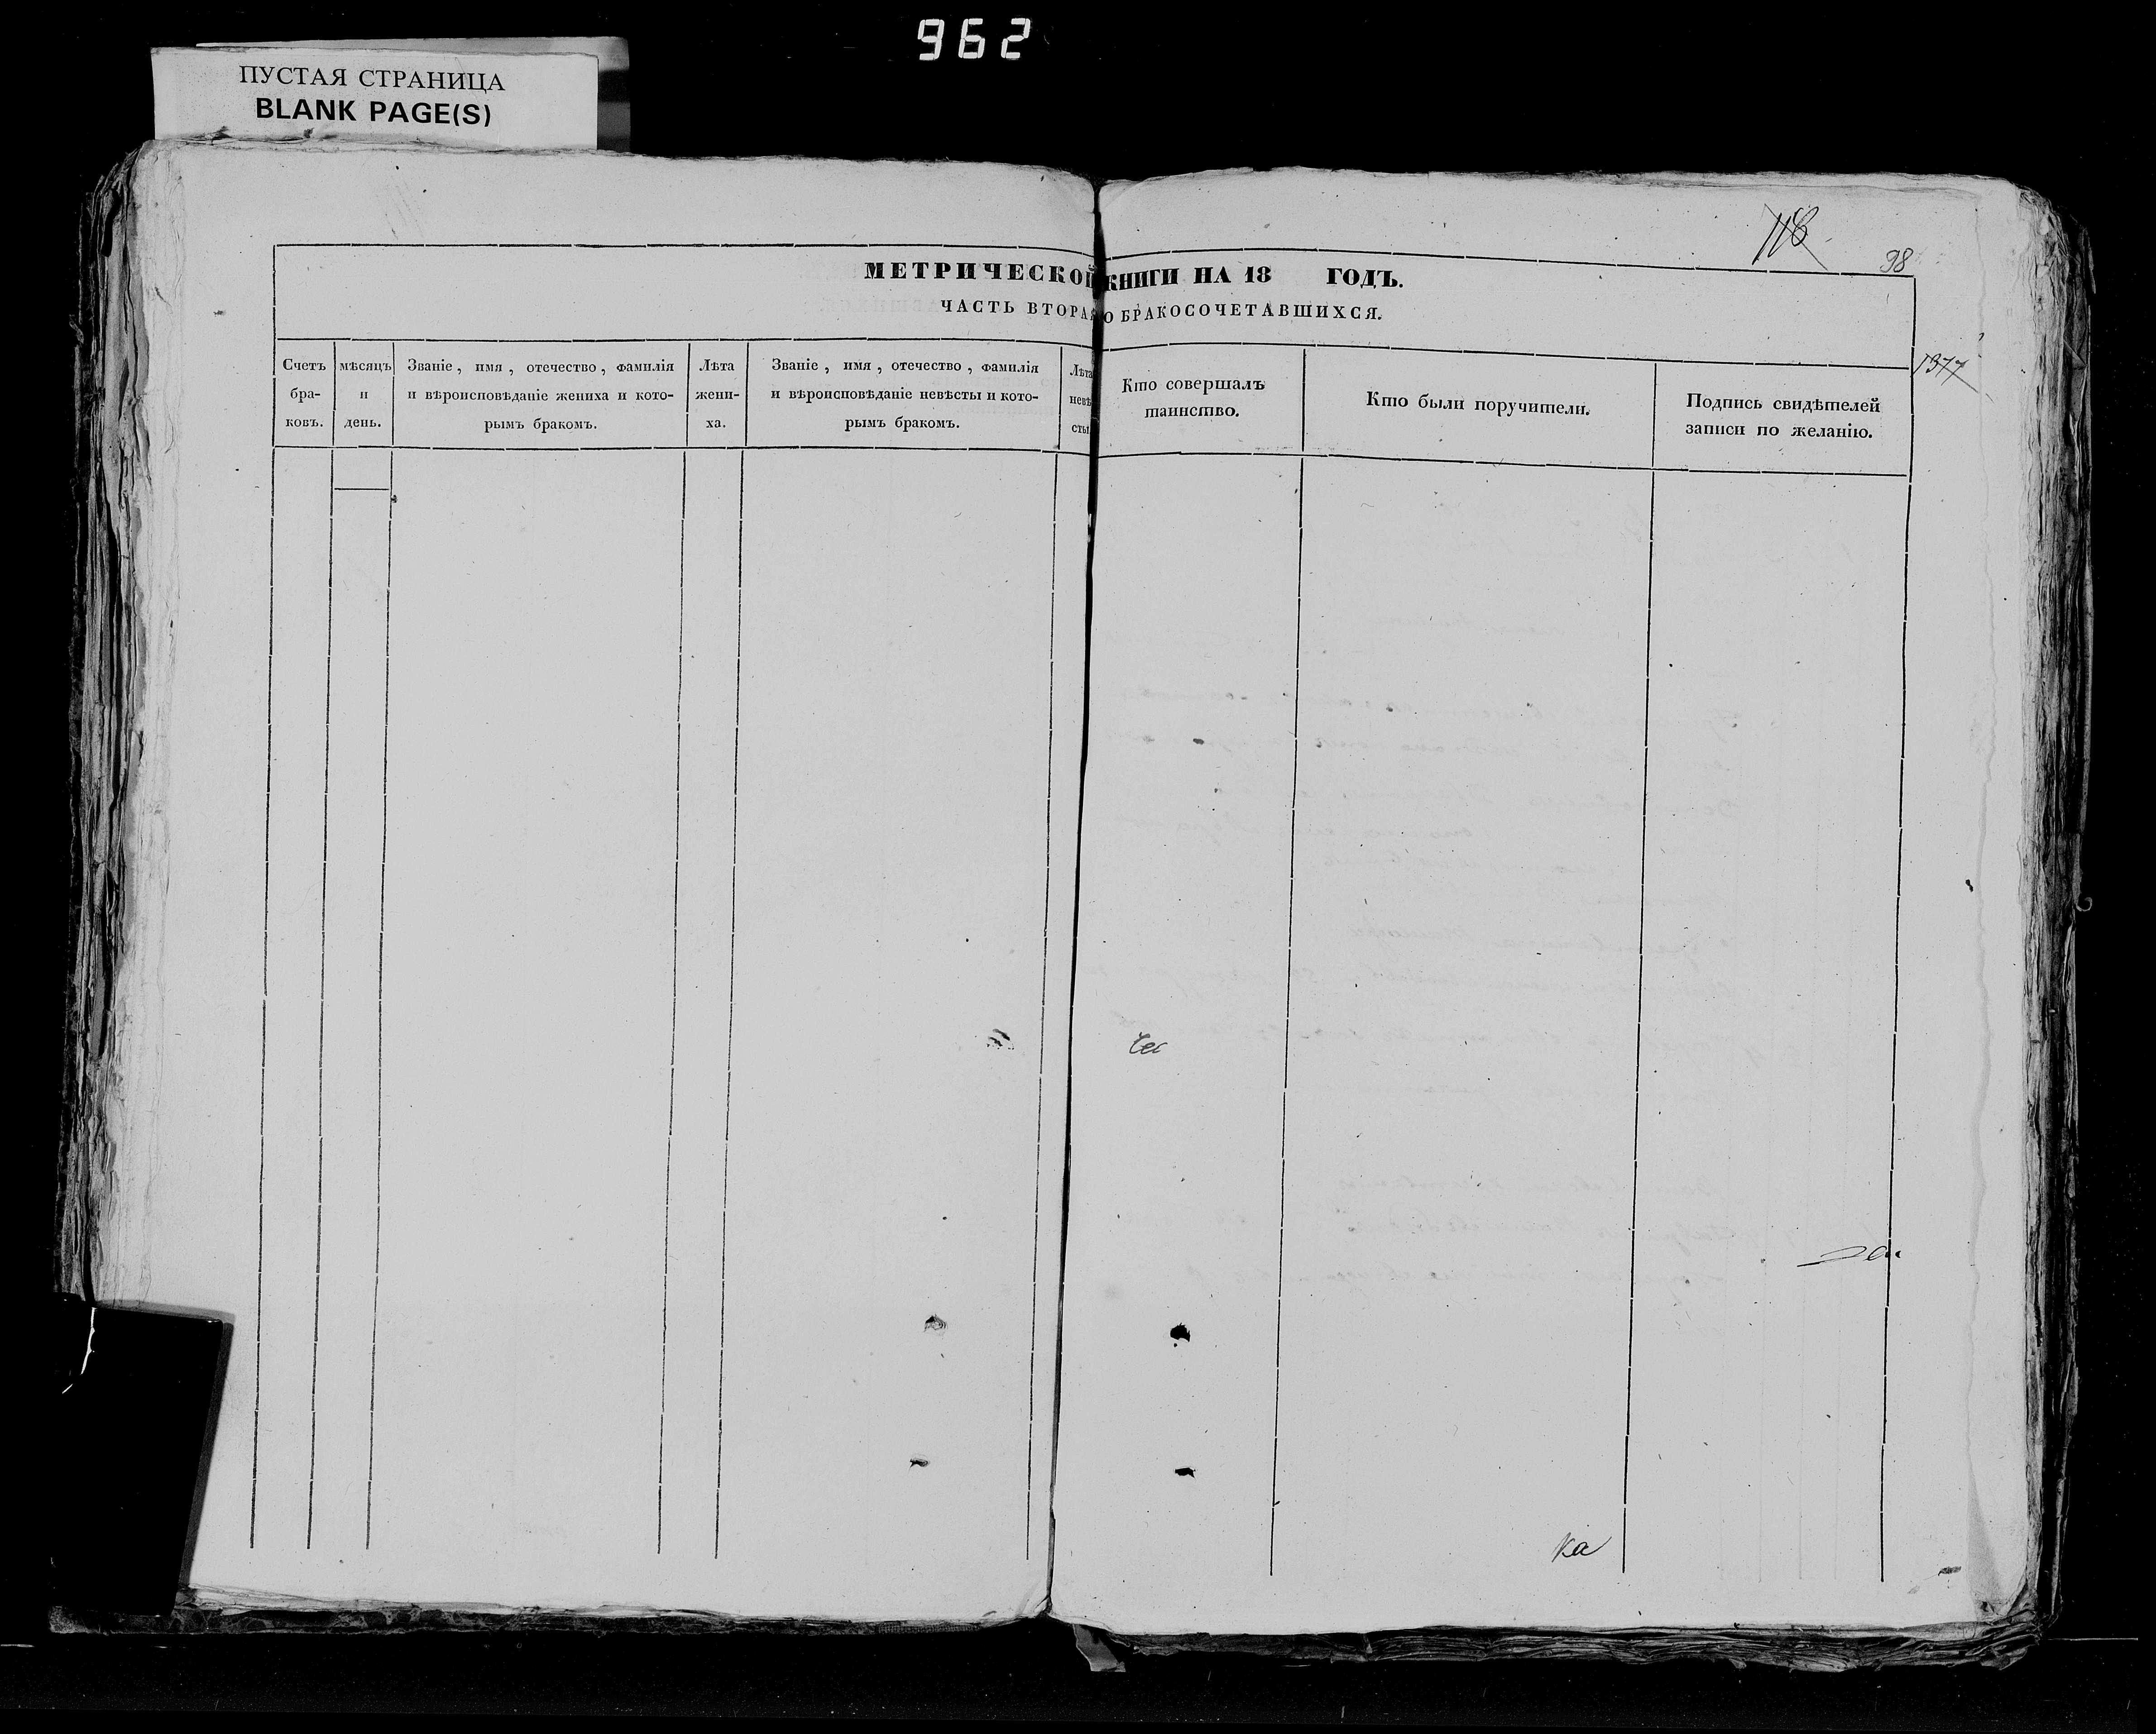 962
ПУСТАЯ СТРАНИЦА
BLANK PAGE(S)
98
МЕТРИЧЕСКОЙ КНИГИ НА 18 ГОДЪ.
ЧАСТЬ ВТОРАЯ О БРАКОСОЧЕТАВШИХСЯ.
1377
Счетъ бра- ковъ.
мѣсяцъ и день.
Званіе, имя, отечество, фамилія
и вѣроисповѣданіе жениха и кото-
рымъ бракомъ.
Лѣта жени- ха.
Званіе, имя, отечество, фамилія
и вѣроисповѣданіе невѣсты и кото-
рымъ бракомъ.
Лѣта невѣ сты
Кто совершалъ
таинство.
Кто были поручители.
Подпись свидѣтелей
записи по желанію.
ка